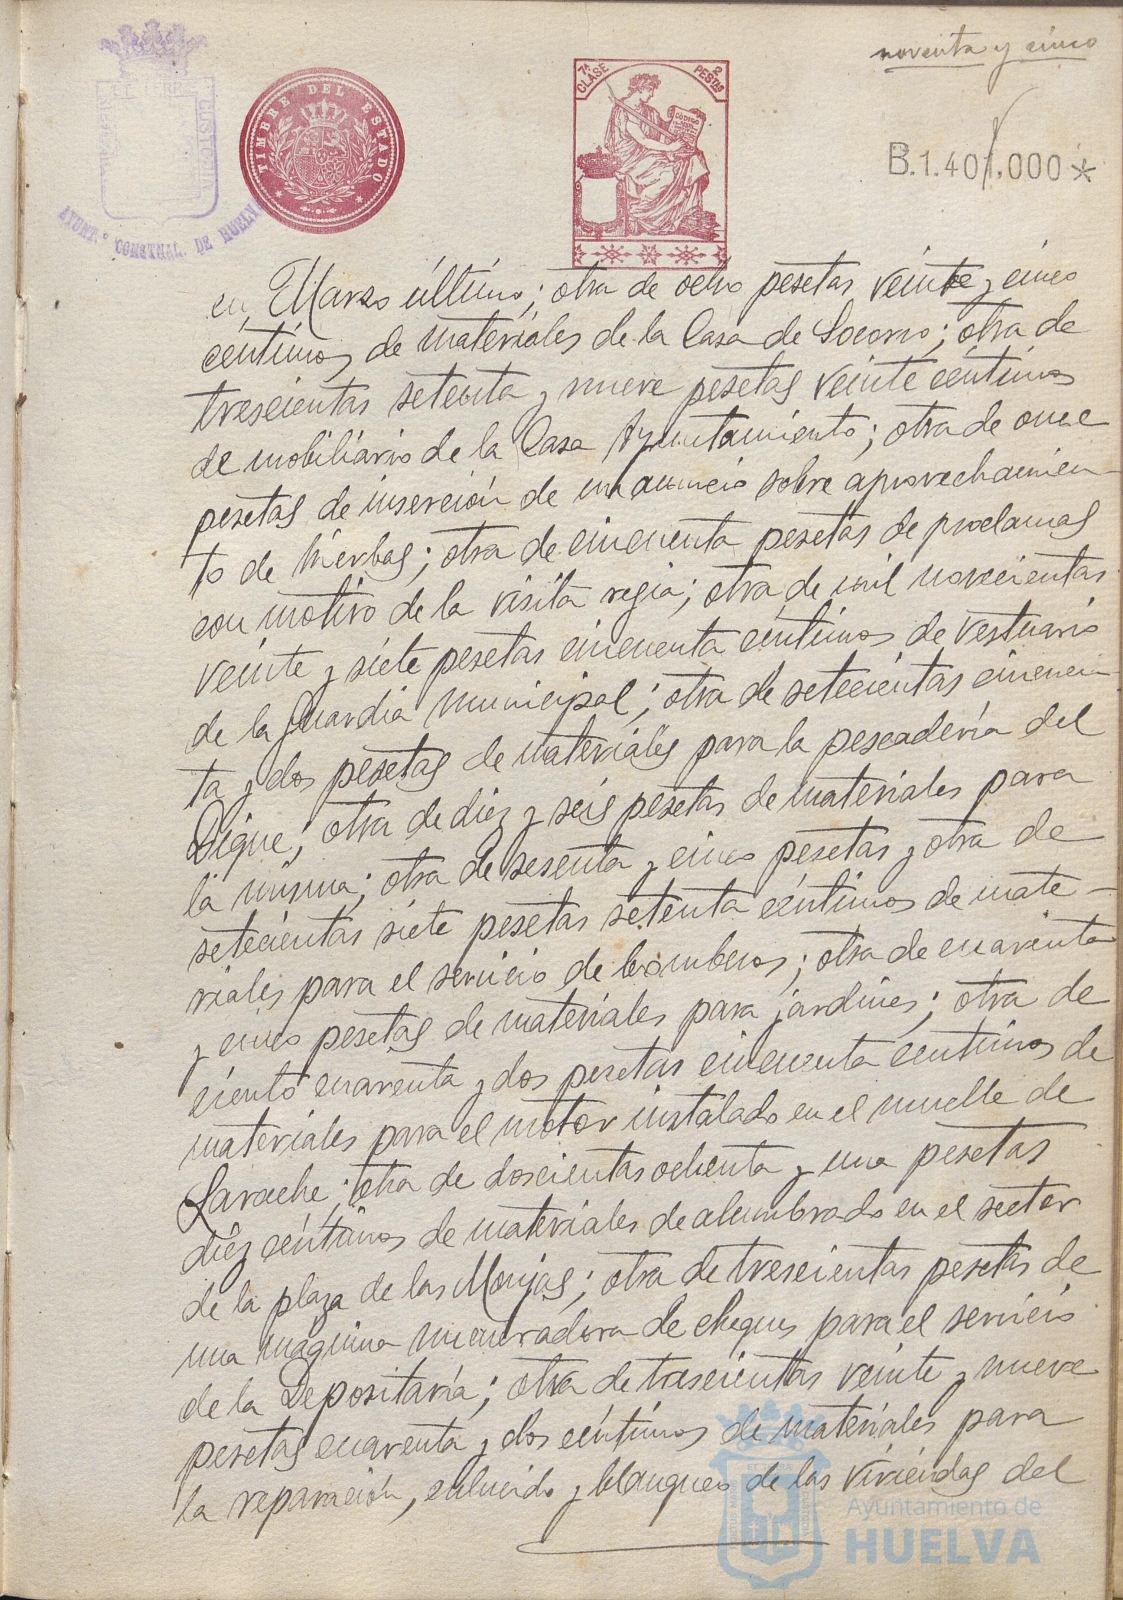 noventa y cinco
TIMBRE DEL ESTADO
7ª CLASE
2 PESTAS
CODIGO
B.1.401.000*
AYUNT.º CONSTNAL. DE HUELVA
en Marzo último; otra de ocho pesetas veinte y cinco
céntimos de materiales de la Casa de Socorro; otra de
trescientas setenta y nueve pesetas veinte céntimos
de mobiliario de la Casa Ayuntamiento; otra de once
pesetas de inserción de un anuncio sobre aprovechamien-
to de hierbas; otra de cincuenta pesetas de proclamas
con motivo de la visita regia; otra de mil novecientas
veinte y siete pesetas cincuenta céntimos de vestuario
de la Guardia Municipal; otra de setecientas cincuen-
ta y dos pesetas de materiales para la pescadería del
Dique; otra de diez y seis pesetas de materiales para
la misma; otra de sesenta y cinco pesetas y otra de
setecientas siete pesetas setenta céntimos de mate-
riales para el servicio de bomberos; otra de cuarenta
y cinco pesetas de materiales para jardines; otra de
ciento cuarenta y dos pesetas cincuenta céntimos de
materiales para el motor instalado en el muelle de
Larache; otra de doscientas ochenta y una pesetas
diez céntimos de materiales de alumbrado en el sector
de la plaza de las Monjas; otra de trescientas pesetas de
una máquina numeradora de cheques para el servicio
de la Depositaría; otra de trescientas veinte y nueve
pesetas cuarenta y dos céntimos de materiales para
la reparación, enlucido y blanqueo de las viviendas del
Ayuntamiento de
HUELVA